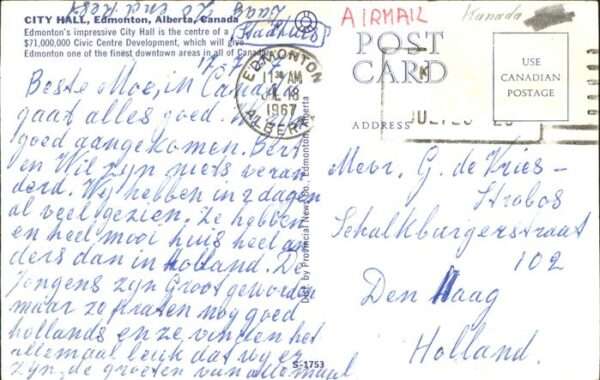 CITY HALL, Edmonton, Alberta, Canada
Edmonton's impressive City Hall is the centre of a
$71,000,000 Civic Centre Development, which will give
Edmonton one of the finest downtown areas in all of Canada.
(Stadhuis)
17-7-67
Beste Moe, in Canada
gaat alles goed. Wij zijn
goed aangekomen. Bert
en Wil zijn niets veran
derd. Wij hebben in 2 dagen
al veel gezien. Ze hebben
en heel mooi huis heel an
ders dan in Holland. De
Jongens zijn Groot geworden
maar zo praten nog goed
hollands en ze vinden het
allemaal leuk dat wij er
zijn, de groeten van allemaal
EDMONTON
11 30 AM
18
1967
ALBERTA
Dist. by Provincial News Co., Edmonton, Alberta
S-1753
AIRMAIL
Kanada
POST
CARD
ADDRESS
USE
CANADIAN
POSTAGE
Mevr. G. de Kries-
Strobos
Schalkburgerstraat
102
Den Haag
Holland.